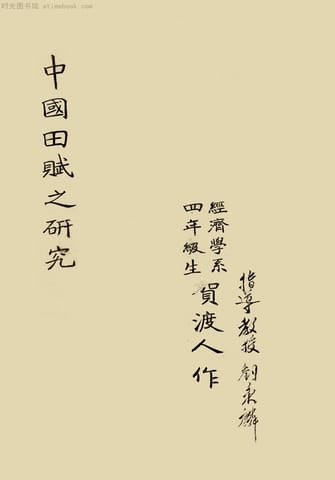 时光图书馆 · etimebook.com
指導教授 劉秉麟
經濟學系
四年級生
賀渡人作
中國田賦之研究